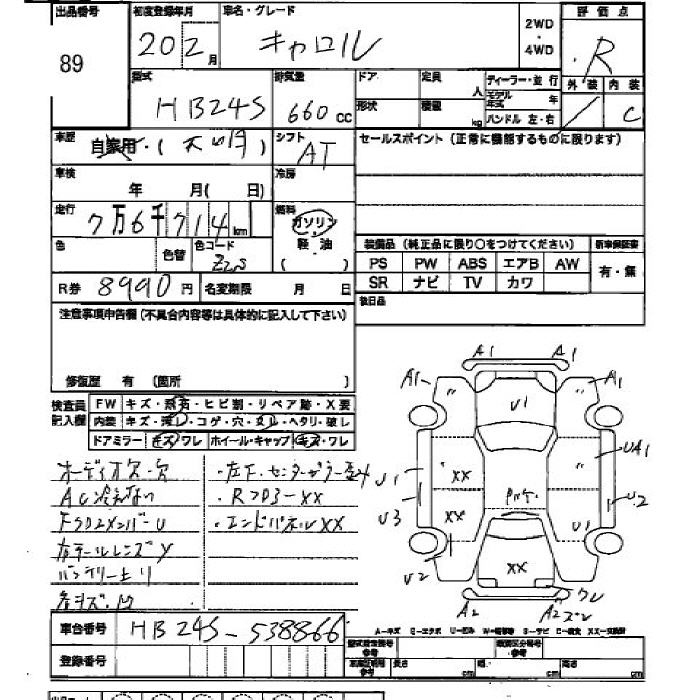 出品番号 初度登録年月 車名・グレード 2WD・4WD 評価点
89 20 2月 キャロル R
型式 排気量 ドア 定員 人 ディーラー・並行 外装 内装
HB24S 660cc 形状 積載 kg モデル年式 年 ハンドル 左・右 / C
車歴 自家用・( ) シフト AT セールスポイント(正常に機能するものに限ります)
車検 年 月( 日) 冷房
走行 7万6千714km 燃料 ガソリン・軽油
( )
色 色替 色コード Z2S 装備品(純正品に限り○をつけてください) 新車保証書
PS PW ABS エアB AW 有・無
R券 8990円 名変期限 月 日 SR ナビ TV カワ
注意事項申告欄(不具合内容等は具体的に記入して下さい) 後日品
修復歴 有(箇所 )
検査員記入欄 FW キズ・飛石・ヒビ割・リペア跡・X要
内装 キズ・汚レ・コゲ・穴・ヌレ・ヘタリ・破レ
ドアミラー キズ・ワレ ホイール・キャップ キズ・ワレ
オーディオ欠・欠 ・左F.センターピラー歪み
AC冷えない ・RフロアーXX
FクロスメンバーU ・エンドパネルXX
右テールレンズY
バッテリー上り
各キズ・凹
A1 A1
A1 〃 U1 〃 A1
U1 〃 XX 〃 UA1
U3 XX U2
U2 XX U1
A2 A2 ワレ
A-キズ E-エクボ U-凹み W-補修跡 S-サビ C-腐食 XX-交換済
車台番号 HB24S-538866 型式指定番号 参考 類別区分番号 参考
登録番号 車庫証明用 参考 長さ cm 幅 cm 高さ cm